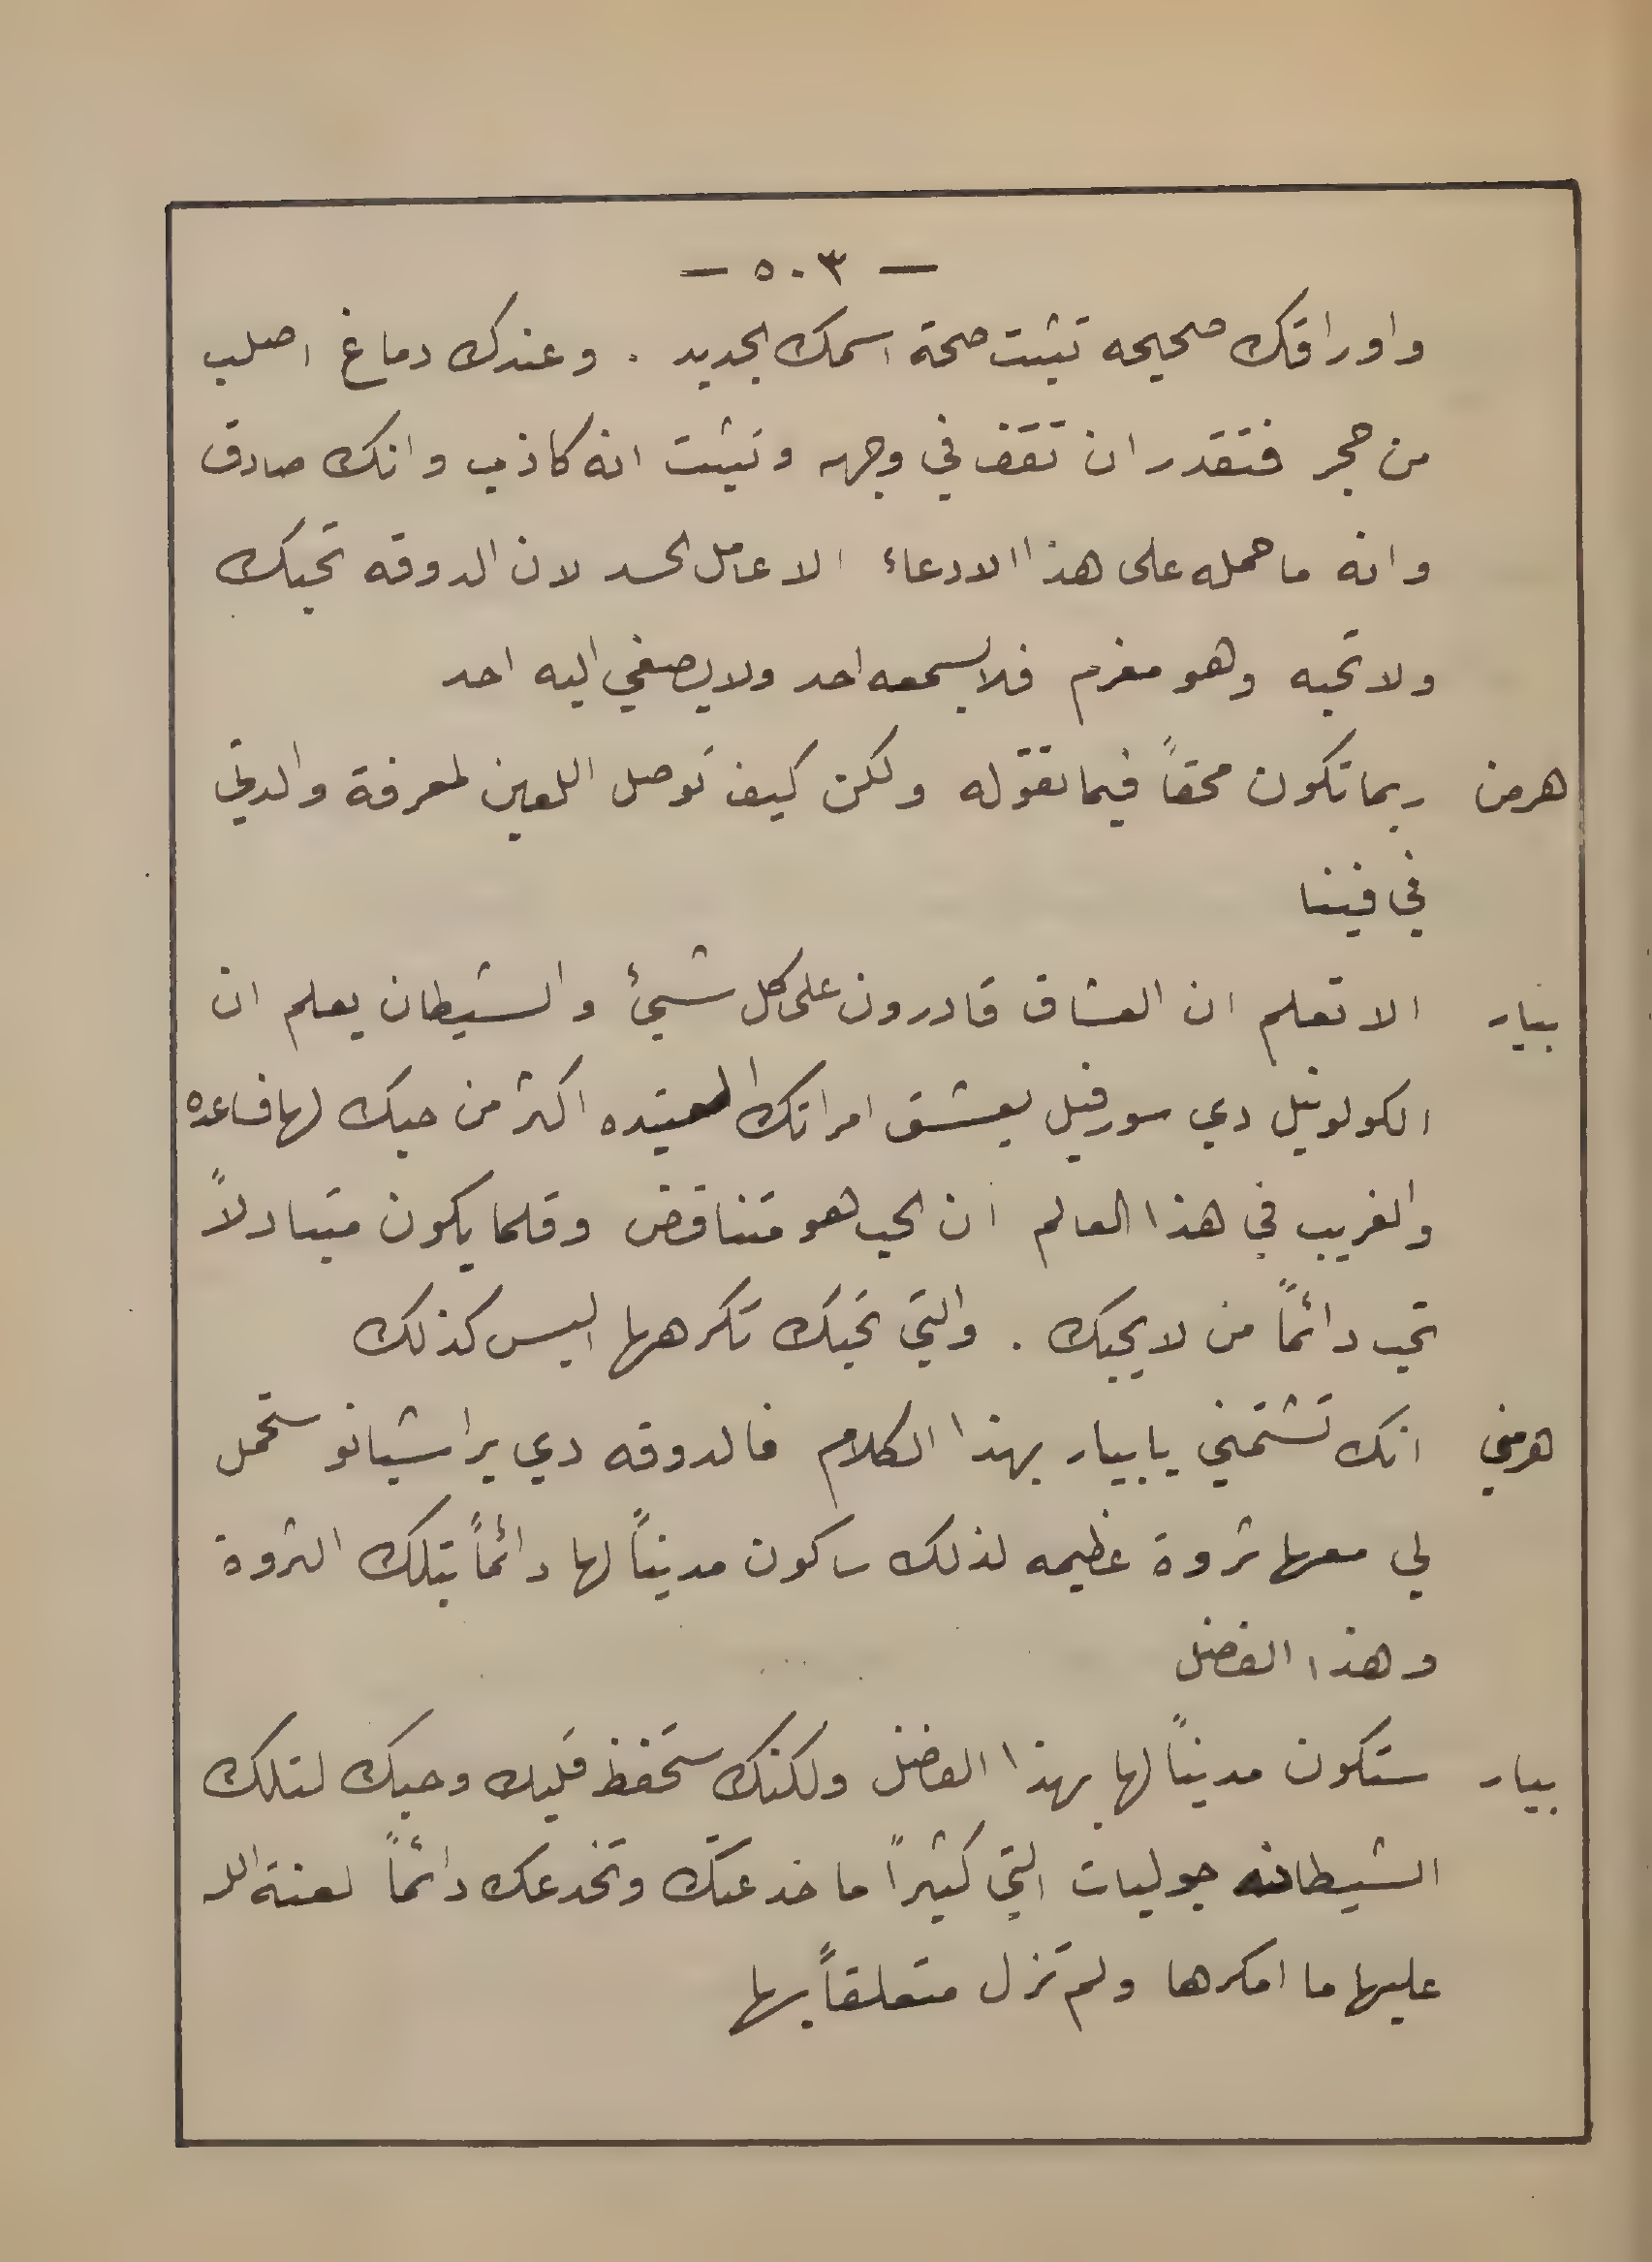 — ٥٠٣ —
واوراقك صحيحه تثبت صحة اسمك الجديد . وعندك دماغ اصلب
من حجر فتقدر ان تقف في وجهه وتثبت انه كاذب وانك صادق
وانه ما حمله على هذا الادعاء الا عامل الحسد لان الدوقه تحبك
ولا تحبه وهو مغرم فلا يسمعه احد ولا يصغي اليه احد
هرمن ربما تكون محقاً فيما تقوله ولكن كيف توصل اللعين لمعرفة والدتي
في فيننا
بيار الا تعلم ان العشاق قادرون على كل شيئ والشيطان يعلم ان
الكولونيل دي سورفيل يعشق امراتك اكثر من حبك لها فساعده
والغريب في هذا العالم ان الحب هو متناقض وقلما يكون متبادلاً
تحب دائماً من لا يحبك . والتي تحبك تكرهها اليس كذلك
هرمن انك تشتمني يا بيار بهذا الكلام فالدوقه دي براشيانو ستحمل
لي معها ثروة عظيمه لذلك ساكون مديناً لها دائماً بتلك الثروة
وهذا الفضل
بيار ستكون مديناً لها بهذا الفضل ولكنك ستحفظ قلبك وحبك لتلك
الشيطانه جوليات التي كثيراً ما خدعتك وتخدعك دائماً لعنة الله
عليها ما امكرها ولم تزل متعلقاً بها